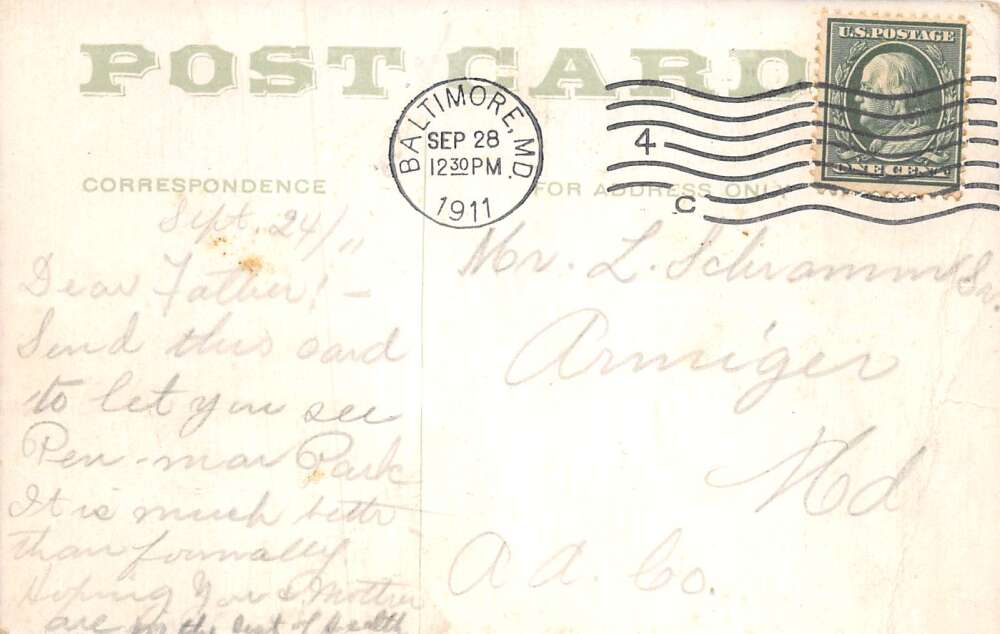 POST CARD
U.S. POSTAGE
ONE CENT
BALTIMORE, MD.
SEP 28
12 30 PM
1911
4
C
CORRESPONDENCE
FOR ADDRESS ONLY
Sept. 24/11
Dear Father! -
Send this card
to let you see
Pen-mar Park
It is much bettr
than formally
Hoping You & Mother
are in the best of health
Mr. L. Schramm Sr.
Armiger
Md
A. A. Co.